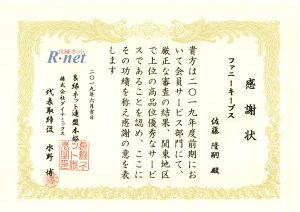 感謝状
ファニーキープス
佐藤 隆嗣 殿
貴方は二〇一九年度前期にお
いて会員サービス部門にて、
厳正な審査の結果、関東地区
で上位の高品位優秀なサービ
スであることを認め、ここに
その功績を称え感謝の意を表
します
二〇一九年六月吉日
良縁ネット連盟本部
株式会社ダイナミックス
代表取締役 水野 博
良縁ネット
R・net